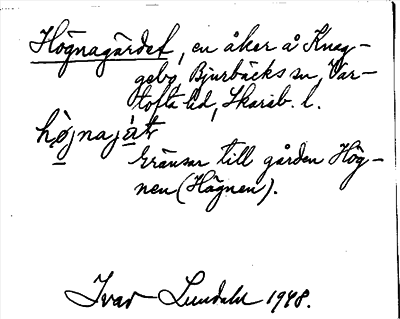 Högnagärdet, en åker å Knag-
gebo, Bjurbäcks sn, Var-
tofta hd, Skarab. l.
högnajät
Gränsar till gården Hög-
nen (Hägnen).
Ivar Lundahl 1948.